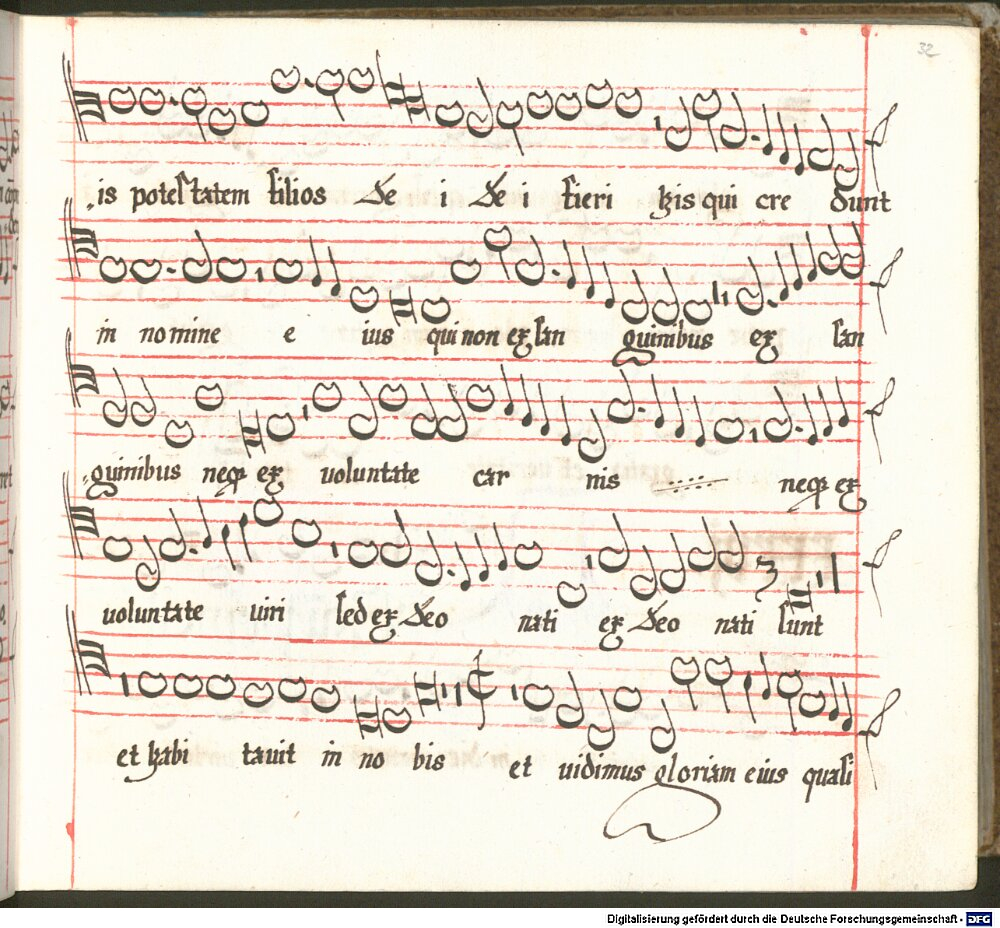 32
is potestatem filios de i de i fieri his qui cre dunt
in nomine e ius qui non ex san guinibus ex san
guinibus neq; ex voluntate car nis neq; ex
voluntate viri sed ex deo nati ex deo nati sunt
et habi tavit in no bis et vidimus gloriam eius quasi
Digitalisierung gefördert durch die Deutsche Forschungsgemeinschaft - DFG